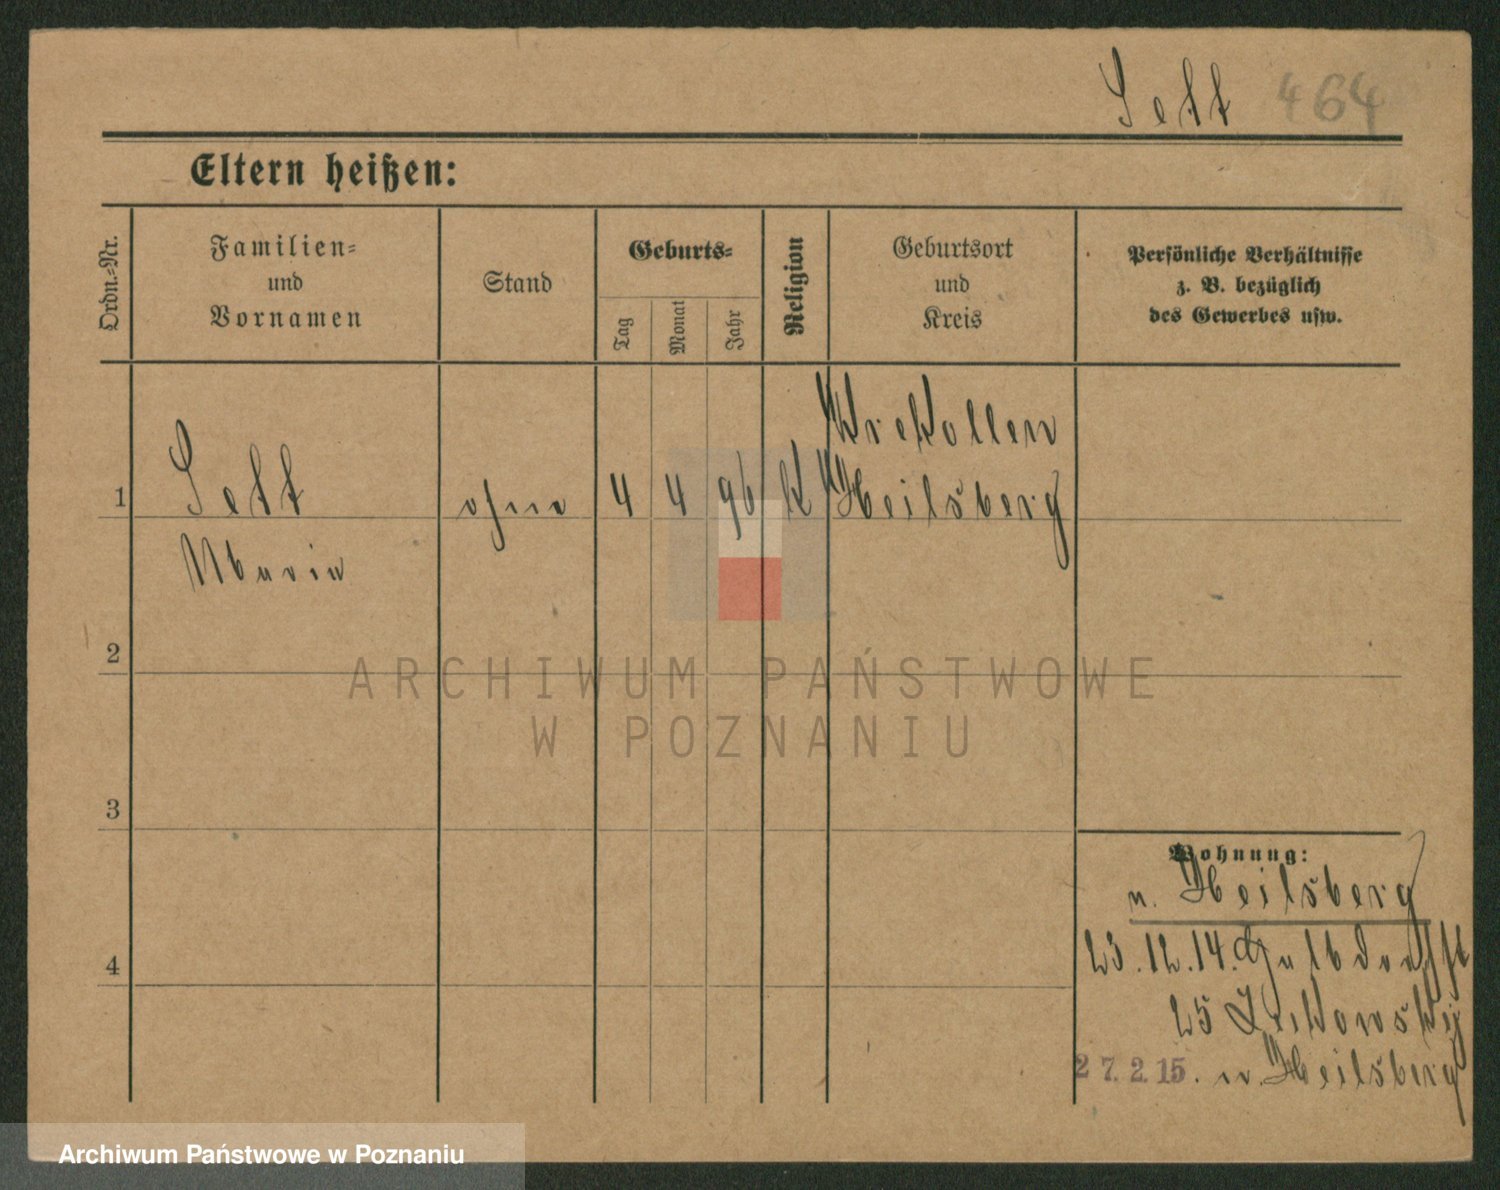 Sett 464
Eltern heißen:
Ordn.-Nr.
Familien-
und
Vornamen
Stand
Geburts-
Tag
Monat
Jahr
Religion
Geburtsort
und
Kreis
Persönliche Verhältnisse
z. B. bezüglich
des Gewerbes usw.
1
Sett
Maria
ohne
4 4 96 K
Krekollen
Heilsberg
2
3
4
Wohnung:
n. Heilsberg
23.12.14.
25
27.2.15. n. Heilsberg
ARCHIWUM PAŃSTWOWE
W POZNANIU
Archiwum Państwowe w Poznaniu